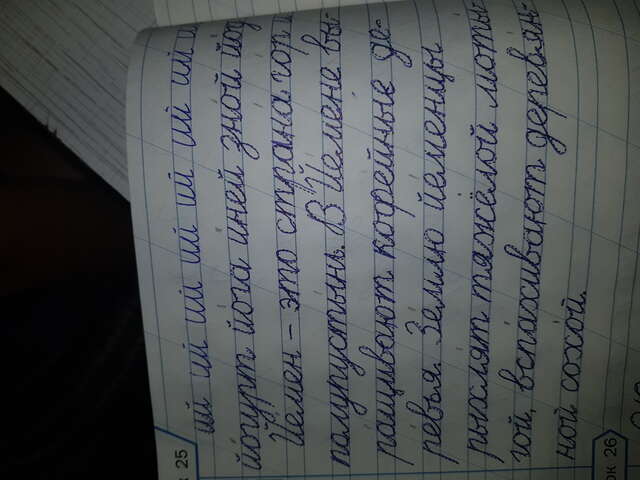 к 25
ий ий ий ий ий ий ий и
йо́гурт йо́га и́ней зно́й йо́д
Йе́мен – э́то страна́ го́р и
полупусты́нь. В Йе́мене вы-
ра́щивают кофе́йные де-
ре́вья. Зе́млю йе́менцы
рыхля́т тяжёлой моты́-
гой, вспа́хивают деревя́н-
ной сохо́й.
ок 26